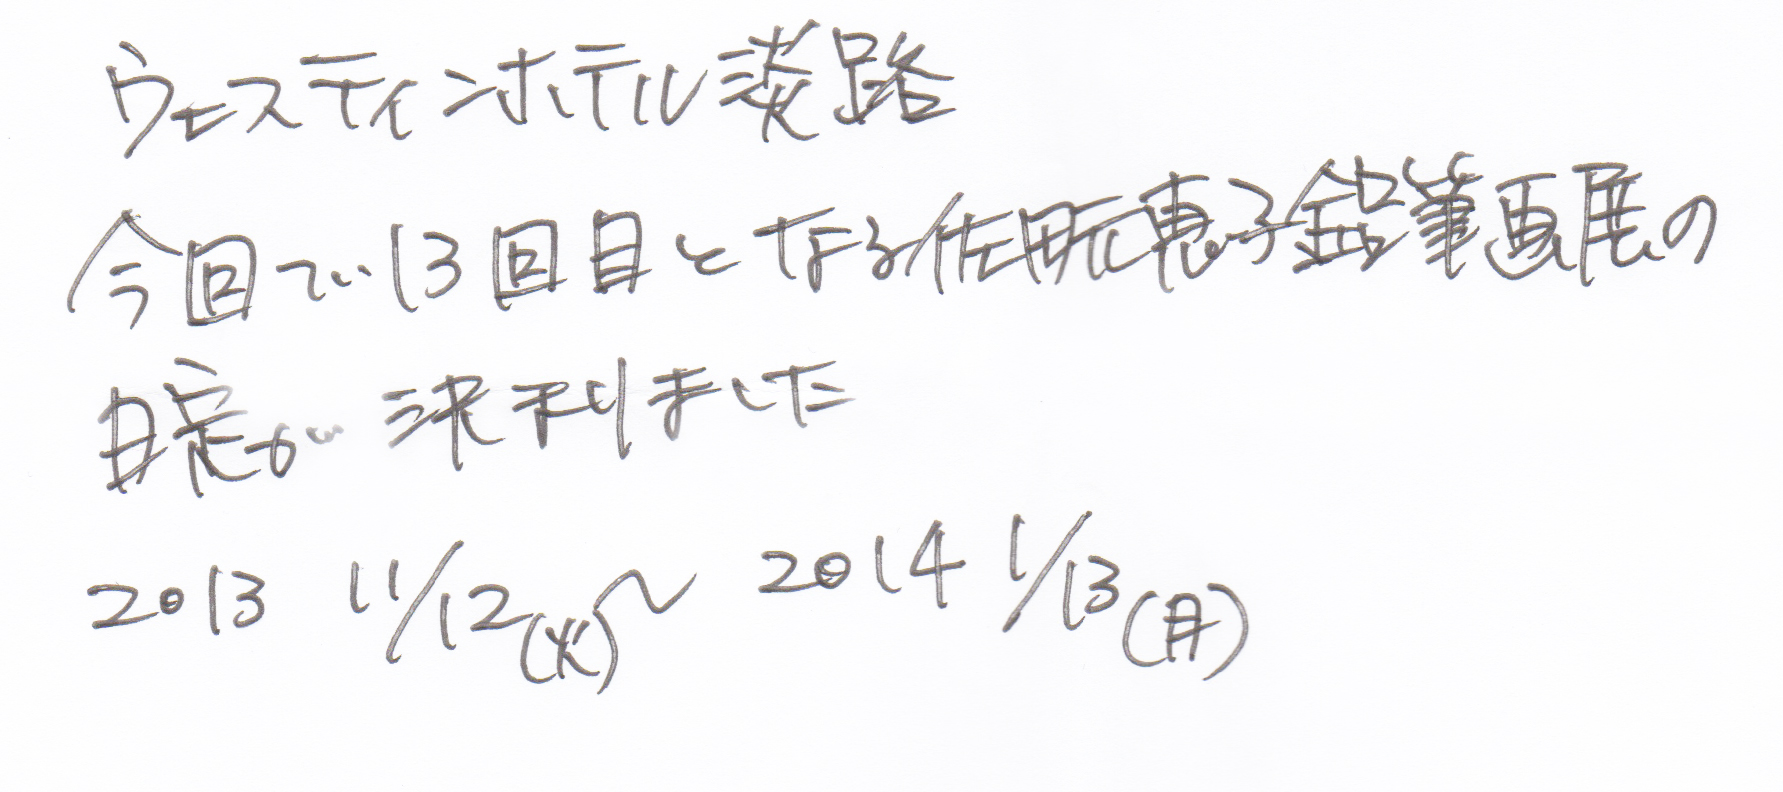 ウェスティンホテル淡路
今回で13回目となる 恵子鉛筆画展の
日定が 決まりました
2013 11/12(火)～ 2014 1/13(月)